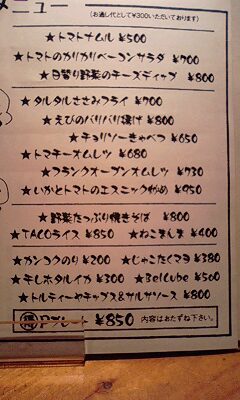 メニュー
(お通し代として¥300いただいております)
★トマトナムル ¥500
★トマトのカリカリベーコンサラダ ¥700
★日替り野菜のチーズディップ ¥800
★タルタルささみフライ ¥700
★えびのバリバリ揚げ ¥800
★チョリソーきゃべつ ¥650
★トマチーオムレツ ¥680
★フランクオープンオムレツ ¥730
★いかとトマトのエスニック炒め ¥950
★野菜たっぷり焼きそば ¥800
★TACOライス ¥850 ★ねこまんま ¥400
★カンコクのり ¥200 ★じゃこたくマヨ ¥380
★干しホタルイカ ¥300 ★BelCube ¥500
★トルティーヤチップス&サルサソース ¥800
得Pプレート ¥850 内容はおたずね下さい。